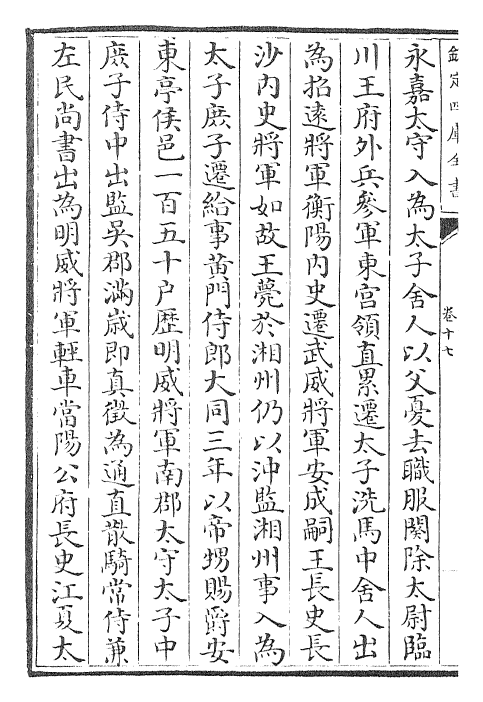 欽定四庫全書
卷十七
永嘉太守入為太子舍人以父憂去職服闋除太尉臨
川王府外兵參軍東宮領直累遷太子洗馬中舍人出
為招逺將軍衡陽内史遷武威將軍安成嗣王長史長
沙内史將軍如故王薨於湘州仍以沖監湘州事入為
太子庻子遷給事黄門侍郎大同三年以帝甥賜爵安
東亭侯邑一百五十户歴明威將軍南郡太守太子中
庻子侍中出監吳郡滿歲即真徵為通直散騎常侍兼
左民尚書出為明威將軍輕車當陽公府長史江夏太